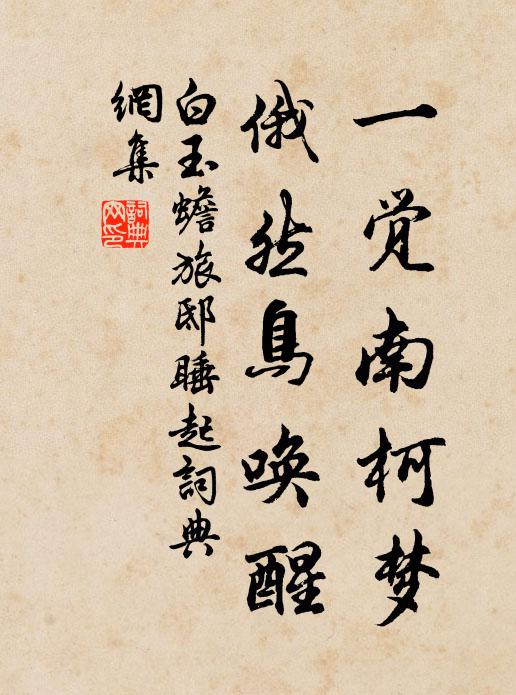 一觉南柯梦
俄然鳥唤醒
白玉蟾旅邸睡起詞典
網集
詞典
网印